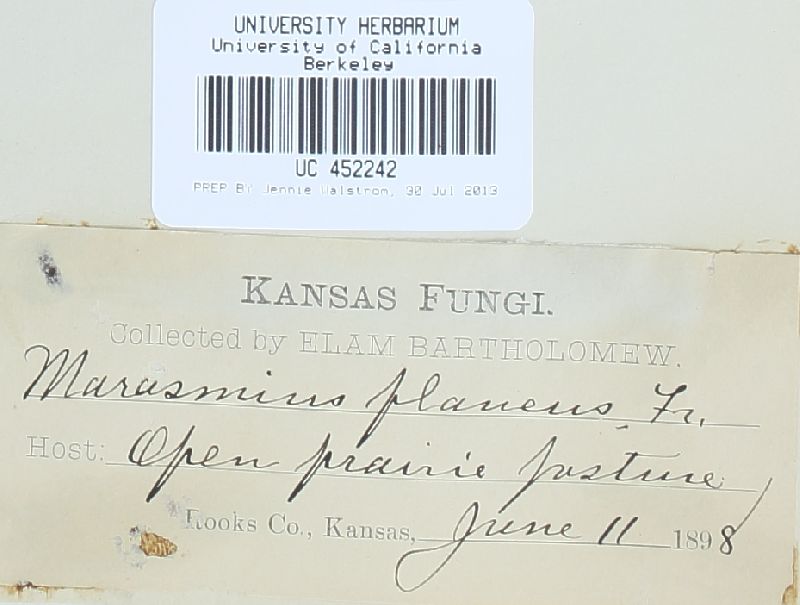 UNIVERSITY HERBARIUM
University of California
Berkeley
UC 452242
PREP BY Jennie Walstrom, 30 Jul 2013
KANSAS FUNGI.
Collected by ELAM BARTHOLOMEW.
Marasmius plancus Fr.
Host: Open prairie pasture
Rooks Co., Kansas, June 11 1898